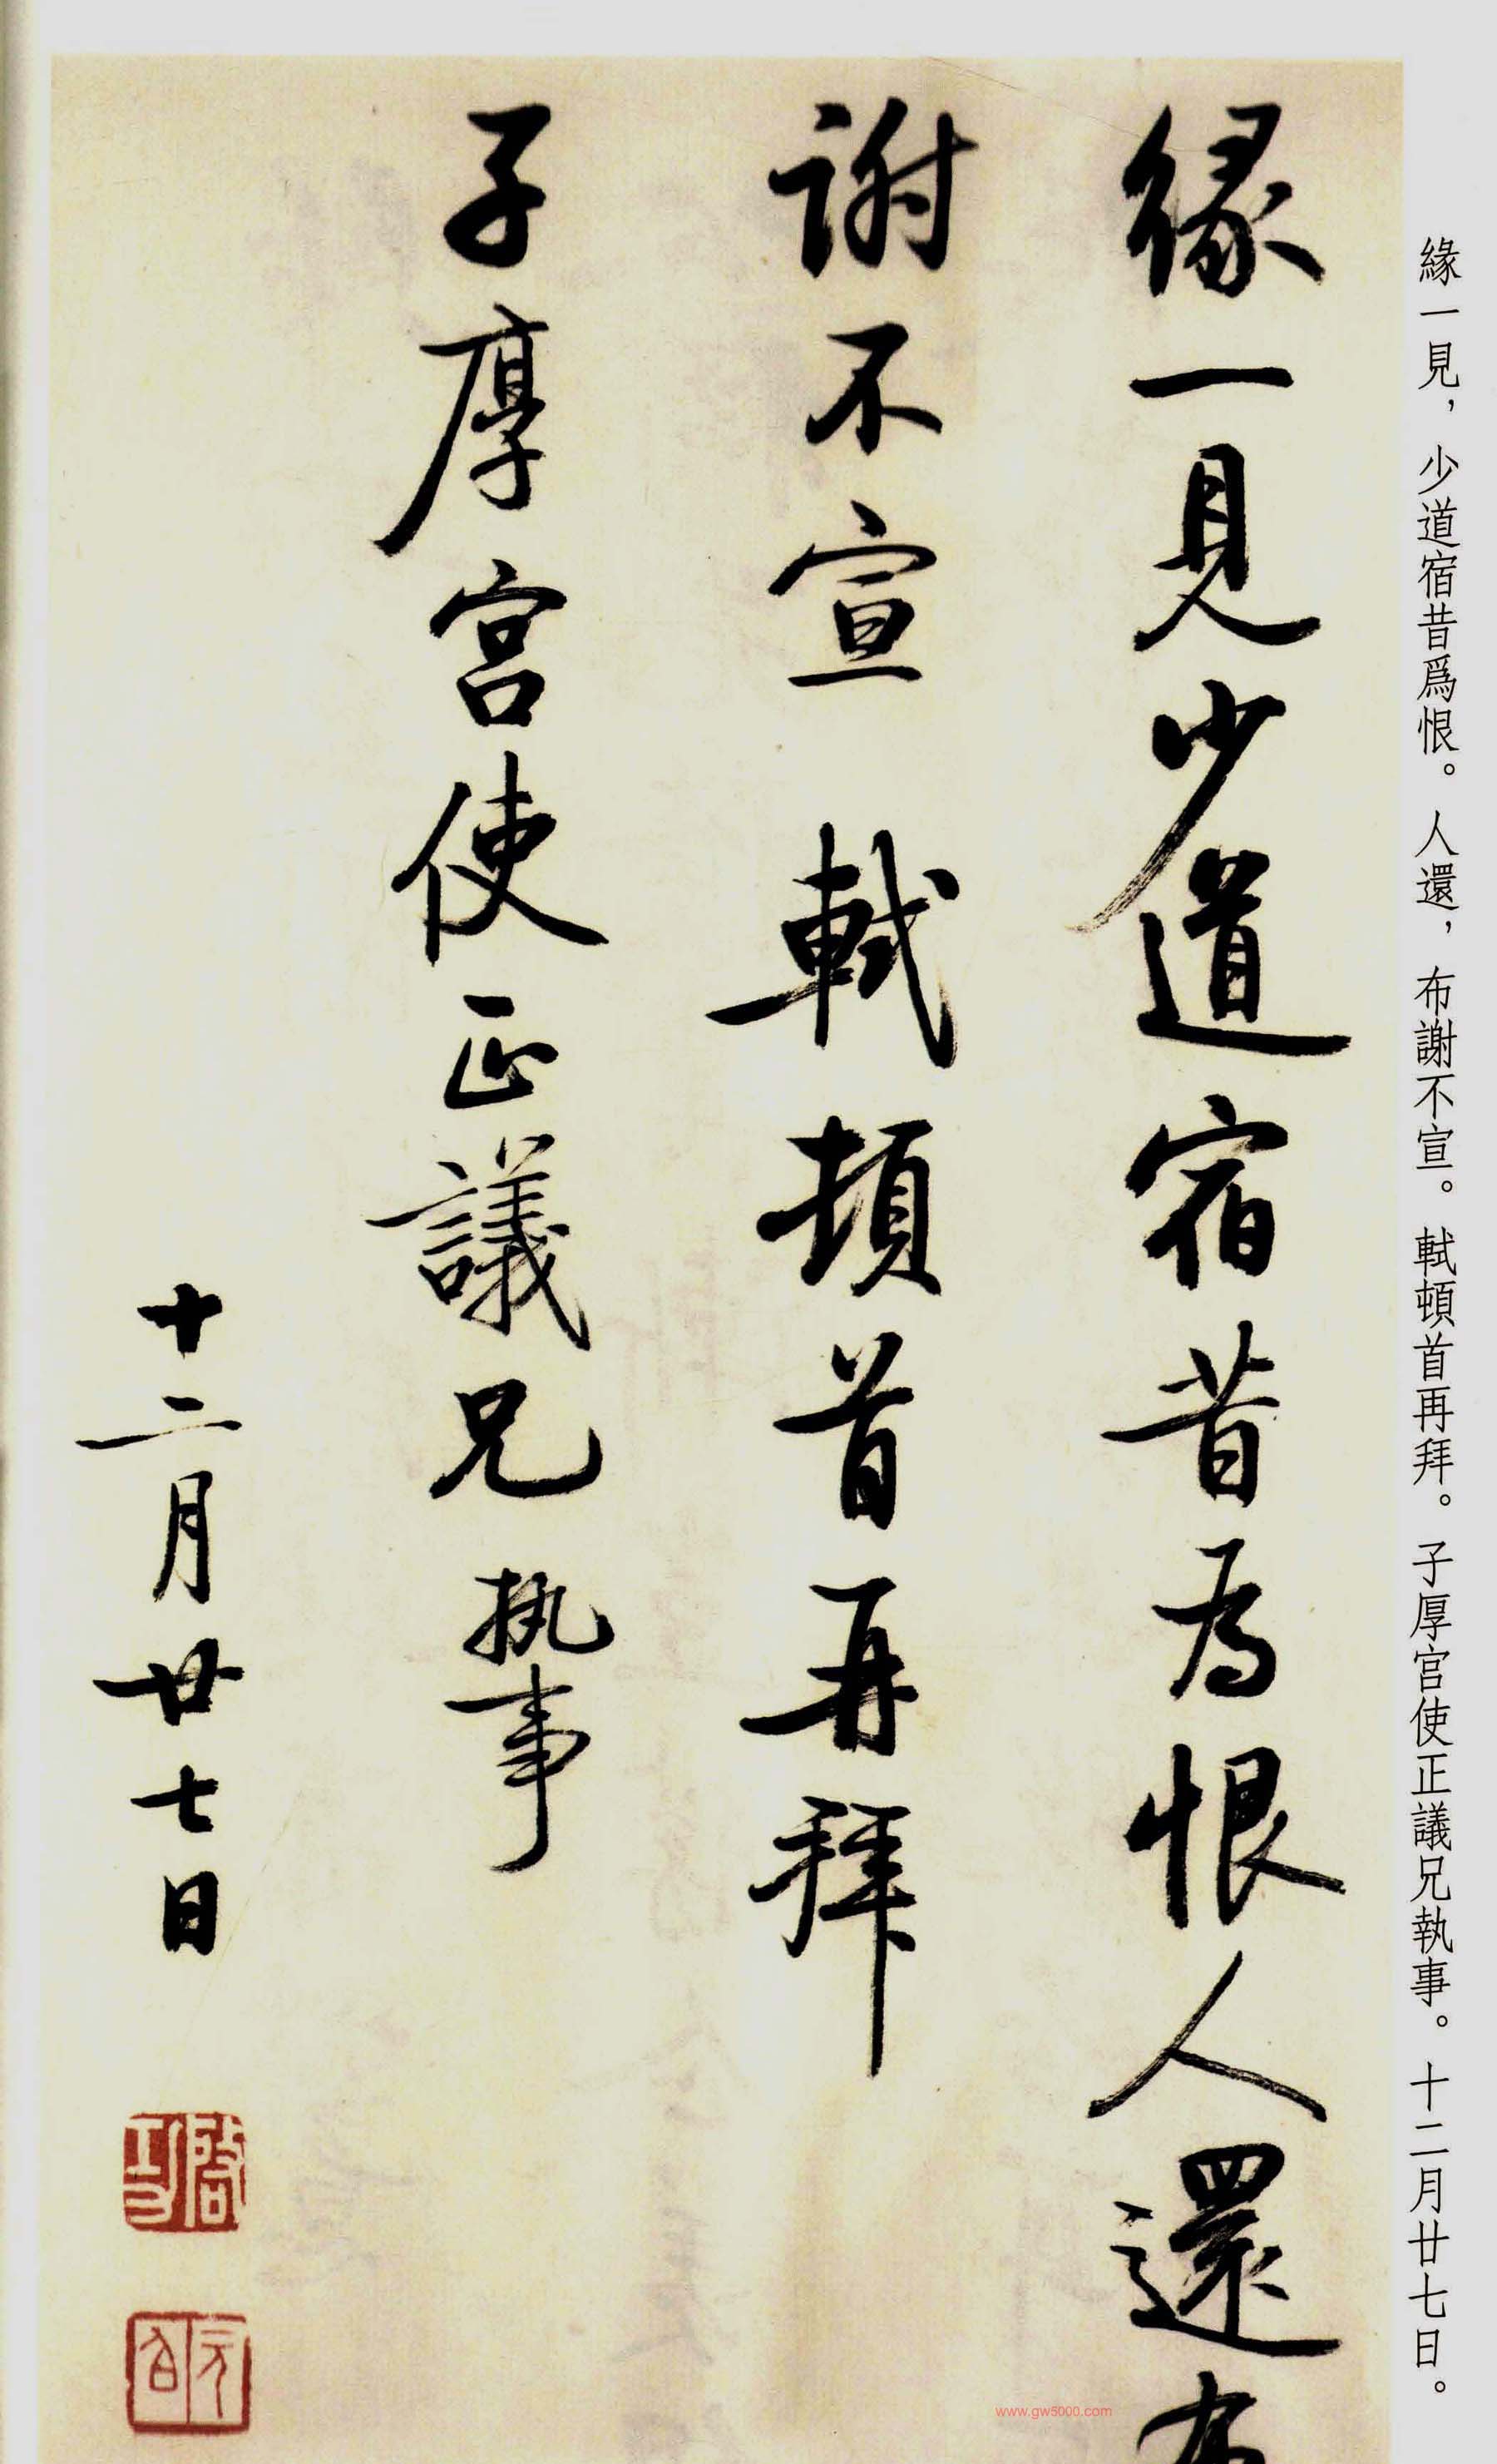 緣一見，少道宿昔爲恨。人還，布謝不宣。軾頓首再拜。子厚宮使正議兄執事。十二月廿七日。
緣一見少道宿昔為恨人還布
謝不宣　軾頓首再拜
子厚宮使正議兄執事
十二月廿七日
啟功
元白
www.gw5000.com